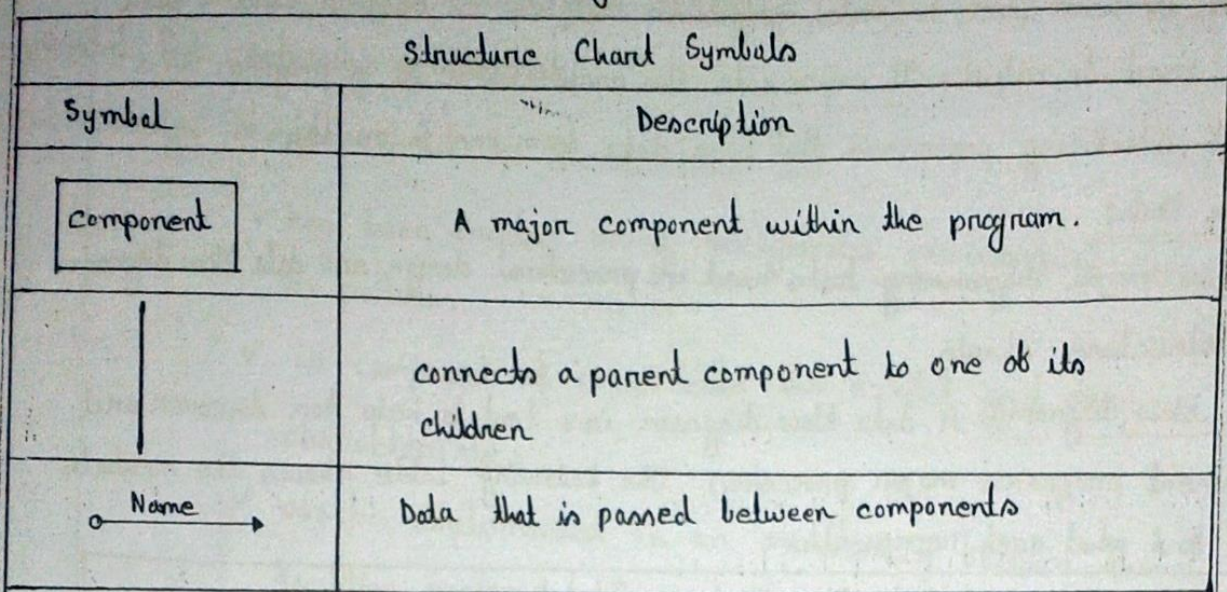 Structure Chart Symbols
Symbol
Description
Component
A major component within the program.
connects a parent component to one of its
children
Name
Data that is passed between components